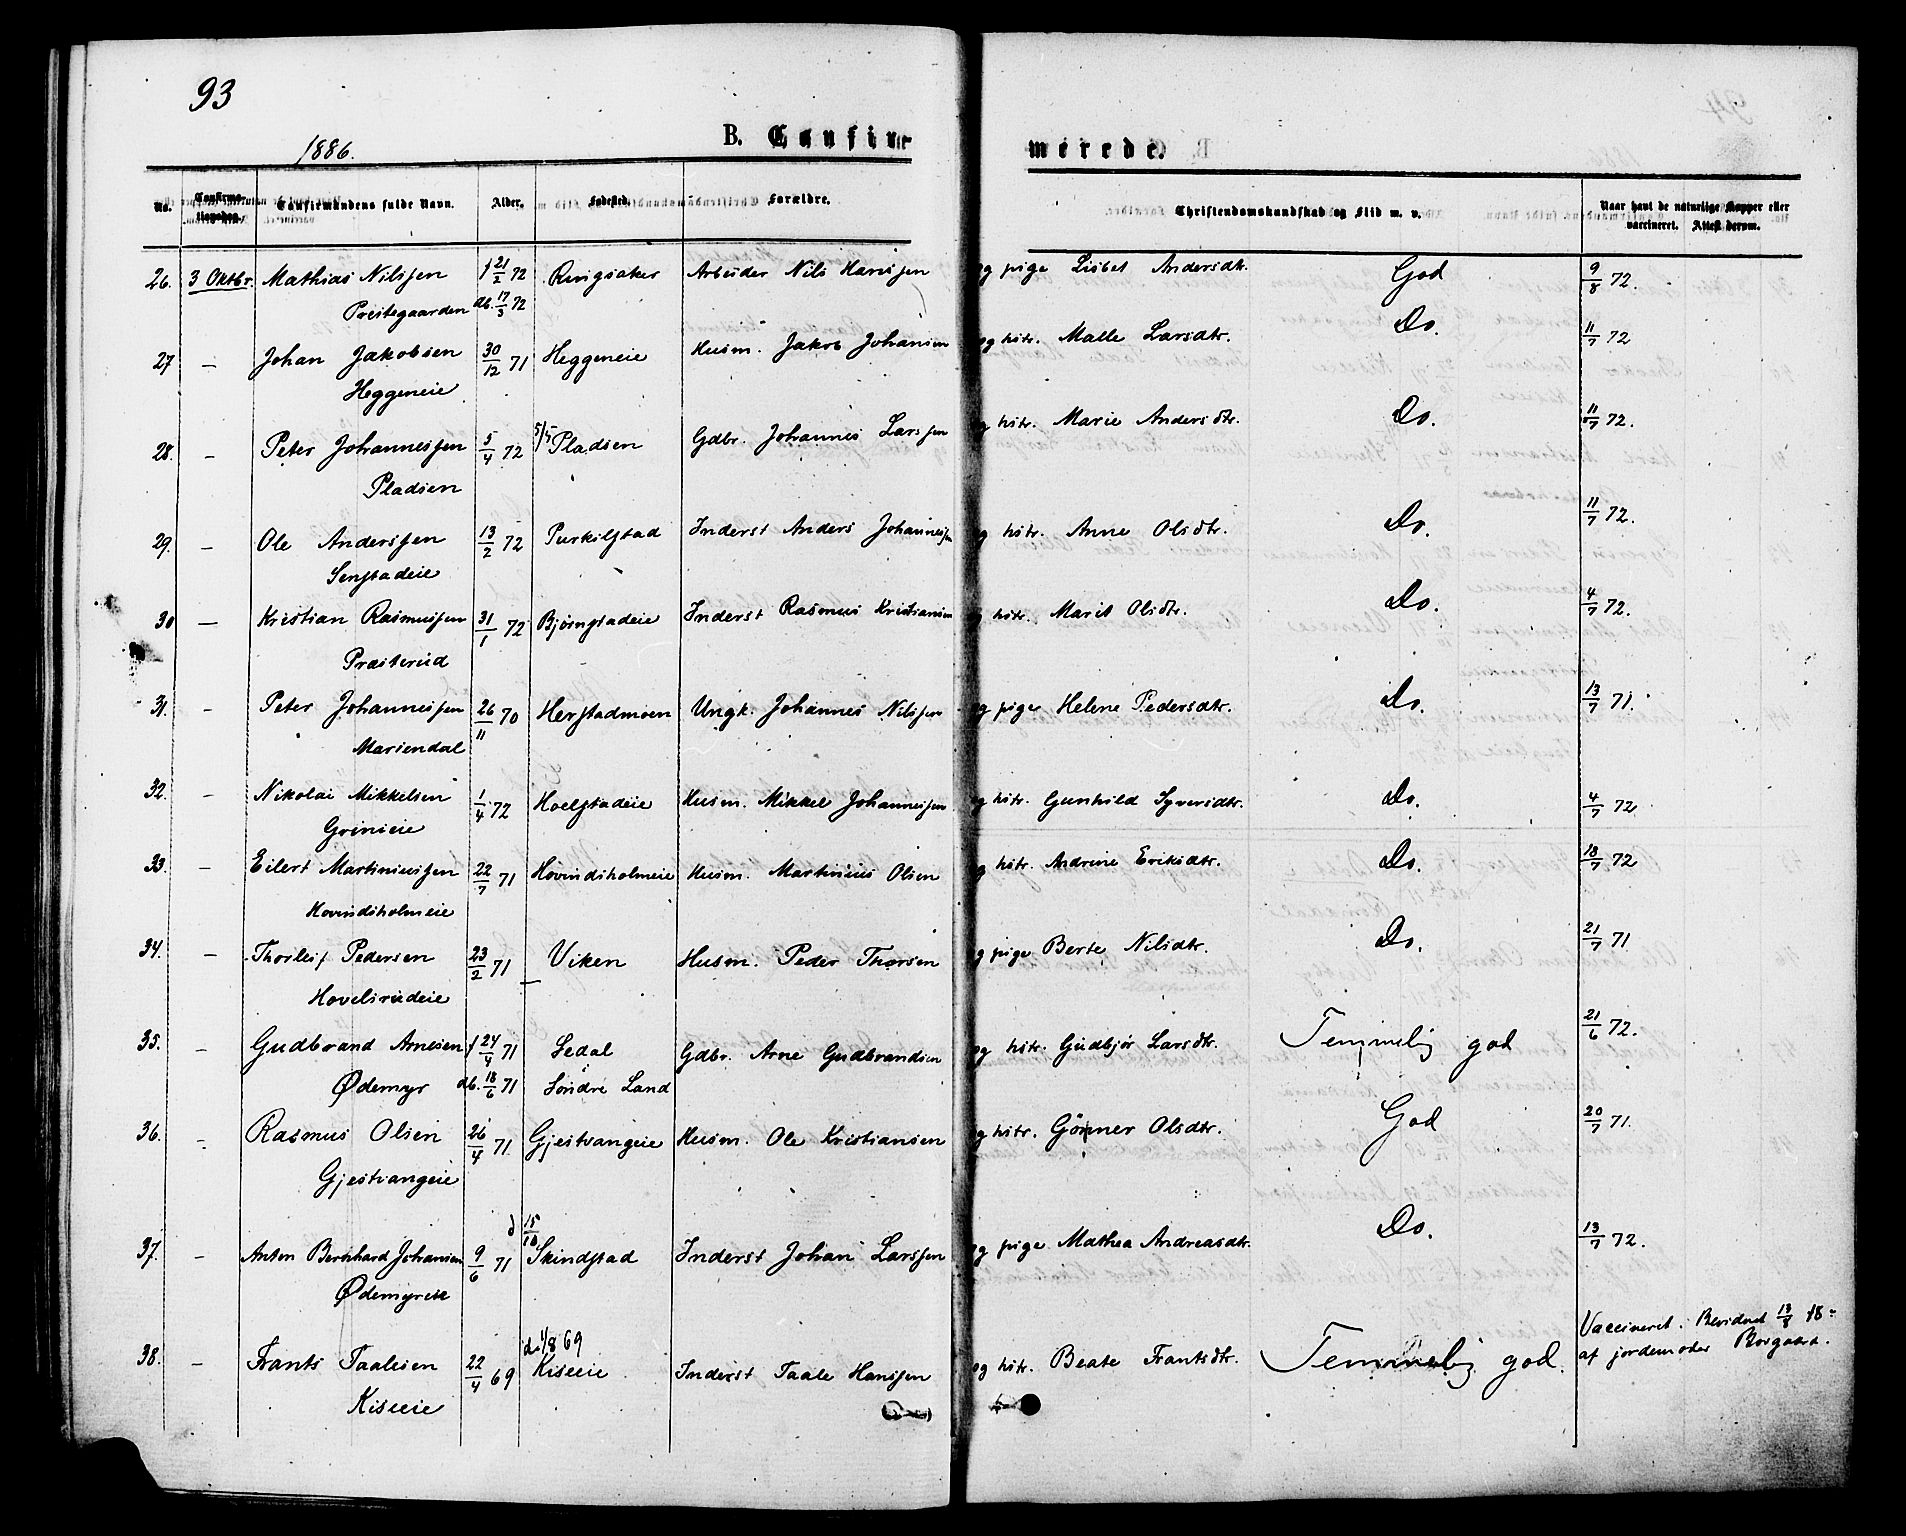 93
1886.
B. Confir-
merede.
No.
Confirma-
tionsdag.
Confirmandens fulde Navn.
Alder.
Fødested.
Forældre.
Christendomskundskab og Flid m. v.
Naar havt de naturlige Kopper eller
vaccineret. Attest derom.
26. 3 Oktbr. Mathias Nilssen f 21/2 72 Ringsaker Arbeider Nils Hanssen og pige Lisbet Andersdtr. God 9/8 72.
Prestegaarden db. 17/3 72
27 — Johan Jakobsen 30/12 71 Heggeneie Husm. Jakob Johansen og hstr. Malle Larsdtr. Do. 11/7 72
Heggeneie
28. — Peter Johannessen 5/4 72 5/5 Pladsen Gdbr. Johannes Larssen og hstr. Marie Andersdtr. Do. 11/7 72.
Pladsen
29. — Ole Anderssen 13/2 72 Purkilstad Inderst Anders Johannessen og hstr. Anne Olsdtr. Do. 11/7 72.
Senstadeie
30 — Kristian Rasmussen 31/1 72 Bjørnstadeie Inderst Rasmus Kristiansen og hstr. Marit Olsdtr. Do. 4/7 72.
Præsterud
31. — Peter Johannessen 26/11 70 Herstadmoen Ungk. Johannes Nilssen og pige Helene Pedersdtr. Do. 13/7 71.
Mariendal
32. — Nikolai Mikkelsen 1/4 72 Hoelstadeie Husm. Mikkel Johannessen og hstr. Gunhild Syversdtr. Do. 4/7 72
Grinieie
33. — Eilert Martiniussen 22/7 71 Hovindsholmeie Husm. Martinius Olsen og hstr. Andrine Eriksdtr. Do. 18/7 72
Hovindsholmeie
34. — Thorleif Pedersen 23/2 71 Viken Husm. Peder Thorsen og pige Berte Nilsdtr. Do. 21/7 71
Hovelsrudeie
35. — Gudbrand Arnesen f 24/4 71 Ledal Gdbr. Arne Gudbrandsen og hstr. Gudbjør Larsdtr. Temmelig god 21/6 72.
Ødemyr db. 18/6 71 Søndre Land
36. — Rasmus Olsen 26/4 71 Gjestvangeie Husm. Ole Kristiansen og hstr. Gønner Olsdtr. God 20/7 71.
Gjestvangeie
d 15/10
37. — Anton Bernhard Johansen 9/6 71 Skindstad Inderst Johan Larssen og pige Mathea Andreasdtr. Do. 13/7 72.
Ødemyreie
d. 1/8 69
38. — Frants Taalesen 22/4 69 Kiseeie Inderst Taale Hanssen og hstr. Beate Frantsdtr. Temmelig god. Vaccineret. Bevidnet 13/8 18-
af jordemoder Borgaard.
Kiseeie